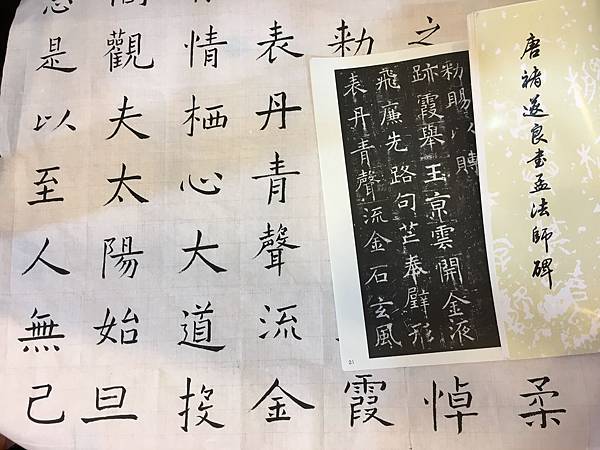 唐褚遂良書孟法師碑
勑賜以賻
跡霞舉玉京雲開金液
飛廉先路句芒奉轡形
表丹青聲流金石玄風
21
柔
之
悼
勑
霞
表丹青聲流金
情栖心大道投
觀夫太陽始旦
是以至人無己